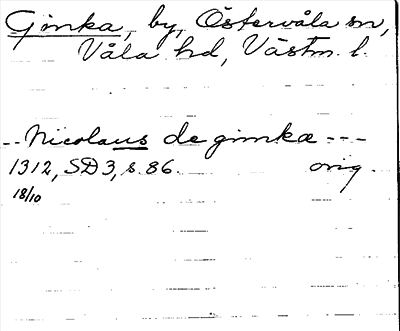 Gimka, by, Östervåla sn,
Våla hd, Västm. l.
-- Nicolaus de gimkæ ---
1312, SD3, s. 86. orig.
18/10